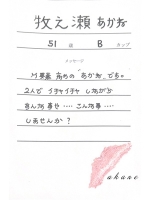 牧之瀬 あかね
51 歳 B カップ
メッセージ
高めの あかね、でち。
2人で イチャイチャ しながら
あんな事や・・・・ こんな事・・・
しませんか？
akane